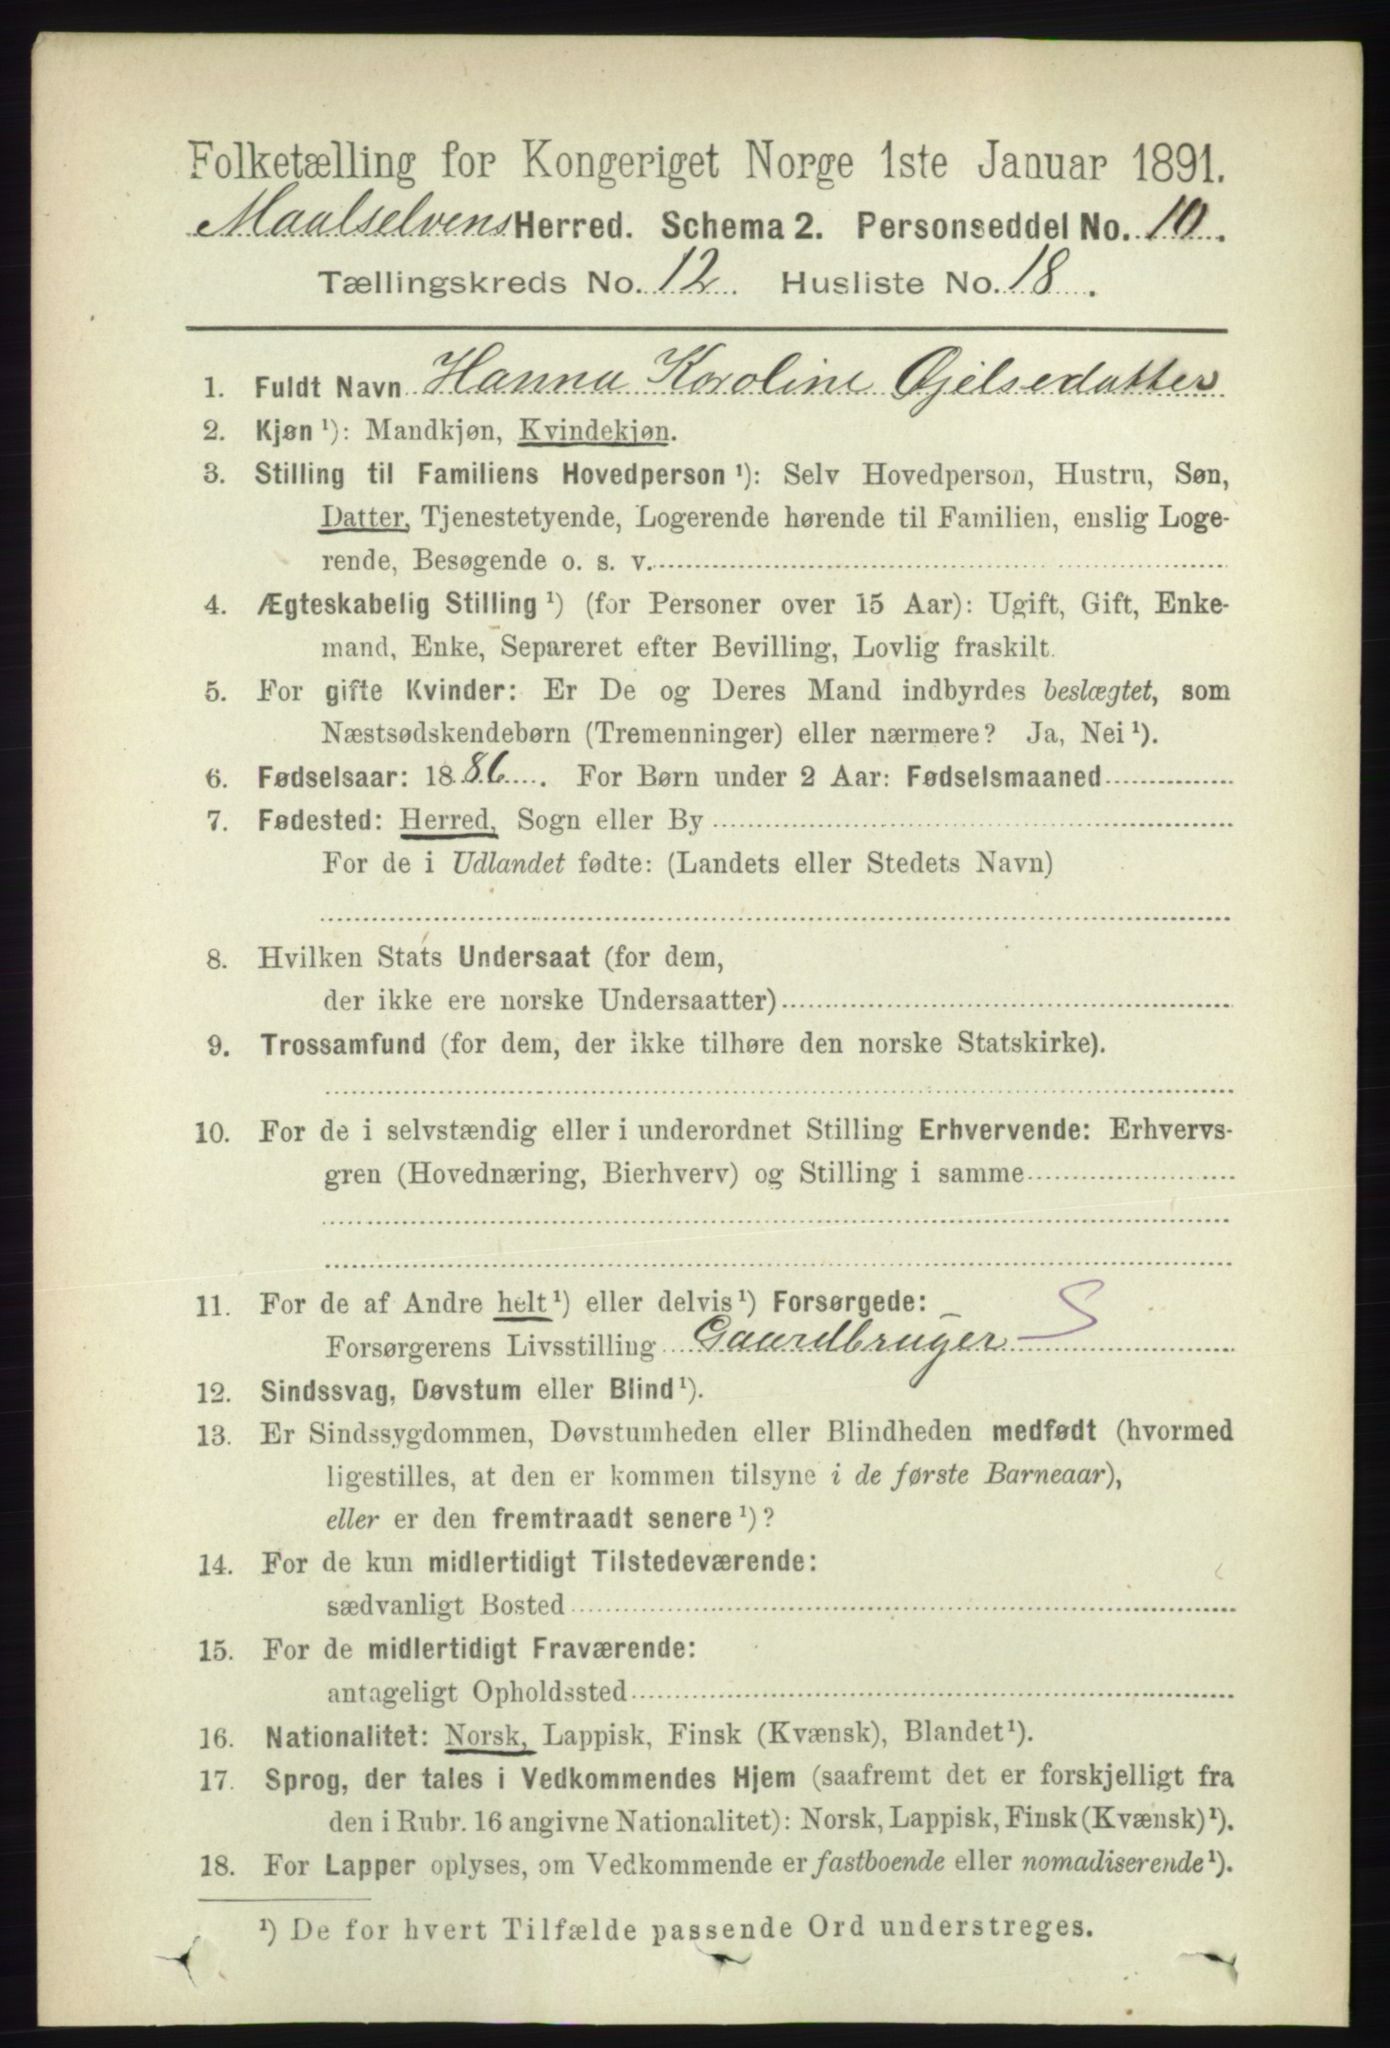 Folketælling for Kongeriget Norge 1ste Januar 1891.
Maalselvens Herred. Schema 2. Personseddel No. 10.
Tællingskreds No. 12. Husliste No. 18.
1. Fuldt Navn Hanna Karoline Øjelsedatter
2. Kjøn ¹): Mandkjøn, Kvindekjøn.
3. Stilling til Familiens Hovedperson ¹): Selv Hovedperson, Hustru, Søn,
Datter, Tjenestetyende, Logerende hørende til Familien, enslig Loge-
rende, Besøgende o. s. v.
4. Ægteskabelig Stilling ¹) (for Personer over 15 Aar): Ugift, Gift, Enke-
mand, Enke, Separeret efter Bevilling, Lovlig fraskilt.
5. For gifte Kvinder: Er De og Deres Mand indbyrdes beslægtet, som
Næstsødskendebørn (Tremenninger) eller nærmere? Ja, Nei ¹).
6. Fødselsaar: 1886. For Børn under 2 Aar: Fødselsmaaned
7. Fødested: Herred, Sogn eller By
For de i Udlandet fødte: (Landets eller Stedets Navn)
8. Hvilken Stats Undersaat (for dem,
der ikke ere norske Undersaatter)
9. Trossamfund (for dem, der ikke tilhøre den norske Statskirke).
10. For de i selvstændig eller i underordnet Stilling Erhvervende: Erhvervs-
gren (Hovednæring, Bierhverv) og Stilling i samme
11. For de af Andre helt ¹) eller delvis ¹) Forsørgede: S
Forsørgerens Livsstilling Gaardbruger
12. Sindssvag, Døvstum eller Blind ¹).
13. Er Sindssygdommen, Døvstumheden eller Blindheden medfødt (hvormed
ligestilles, at den er kommen tilsyne i de første Barneaar),
eller er den fremtraadt senere ¹)?
14. For de kun midlertidigt Tilstedeværende:
sædvanligt Bosted
15. For de midlertidigt Fraværende:
antageligt Opholdssted
16. Nationalitet: Norsk, Lappisk, Finsk (Kvænsk), Blandet ¹).
17. Sprog, der tales i Vedkommendes Hjem (saafremt det er forskjelligt fra
den i Rubr. 16 angivne Nationalitet): Norsk, Lappisk, Finsk (Kvænsk) ¹).
18. For Lapper oplyses, om Vedkommende er fastboende eller nomadiserende ¹).
¹) De for hvert Tilfælde passende Ord understreges.